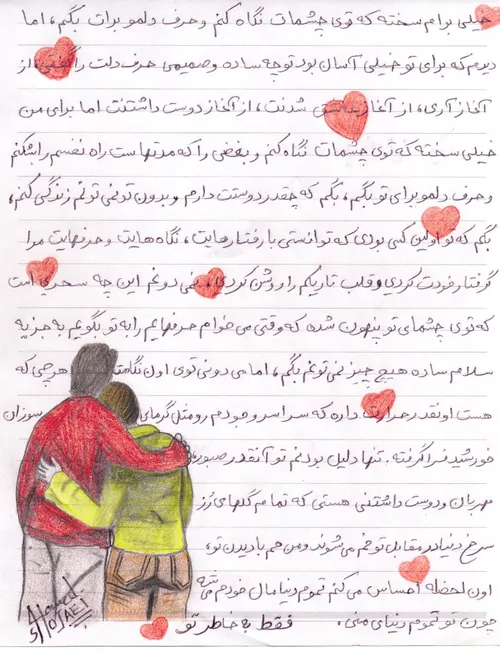 خیلی برام سخته که توی چشمات نگاه کنم و حرف دلمو برات بگم، اما
دیدم که برای تو خیلی آسان بود تو چه ساده و صمیمی حرف دلت را گفتی، از
آغاز آری، از آغاز عاشق شدنت، از آغاز دوست داشتنت اما برای من
خیلی سخته که توی چشمات نگاه کنم و بغضی را که مدتهاست راه نفسم را بشکنم
و حرف دلمو برای تو بگم، بگم که چقدر دوستت دارم و بدون تو نمی تونم زندگی کنم،
بگم که تو اولین کسی بودی که توانستی با رفتارهایت، نگاه هایت و حرفهایت مرا
گرفتار خودت کردی و قلب تاریکم را روشن کردی، نمی دونم این چه سحری است
که توی چشمای تو پنهون شده که وقتی می خوام حرفهایم را به تو بگویم به جز یه
سلام ساده هیچ چیز نمی تونم بگم، اما می دونی توی اون نگاهت هر چی که
هست اونقدر حرارت داره که سراسر وجودم رو مثل گرمای سوزان
خورشید فرا گرفته. تنها دلیل بودنم تو آنقدر صبور،
مهربان و دوست داشتنی هستی که تمام گلهای رز
سرخ دنیا در مقابل تو خم می شوند و من هم با دیدن تو،
اون لحظه احساس می کنم تموم دنیا مال خودم می شه
چون تو تموم دنیای منی. فقط به خاطر تو